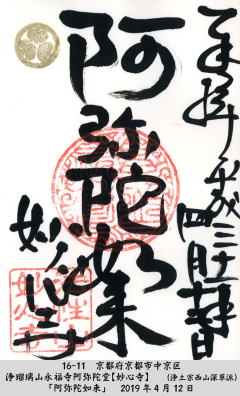 奉拝 平成三十一年四月十二日
阿弥陀如来
妙心寺
16-11 京都府京都市中京区
浄瑠璃山永福寺阿弥陀堂【妙心寺】 (浄土宗西山深草派)
「阿弥陀如来」 2019年4月12日